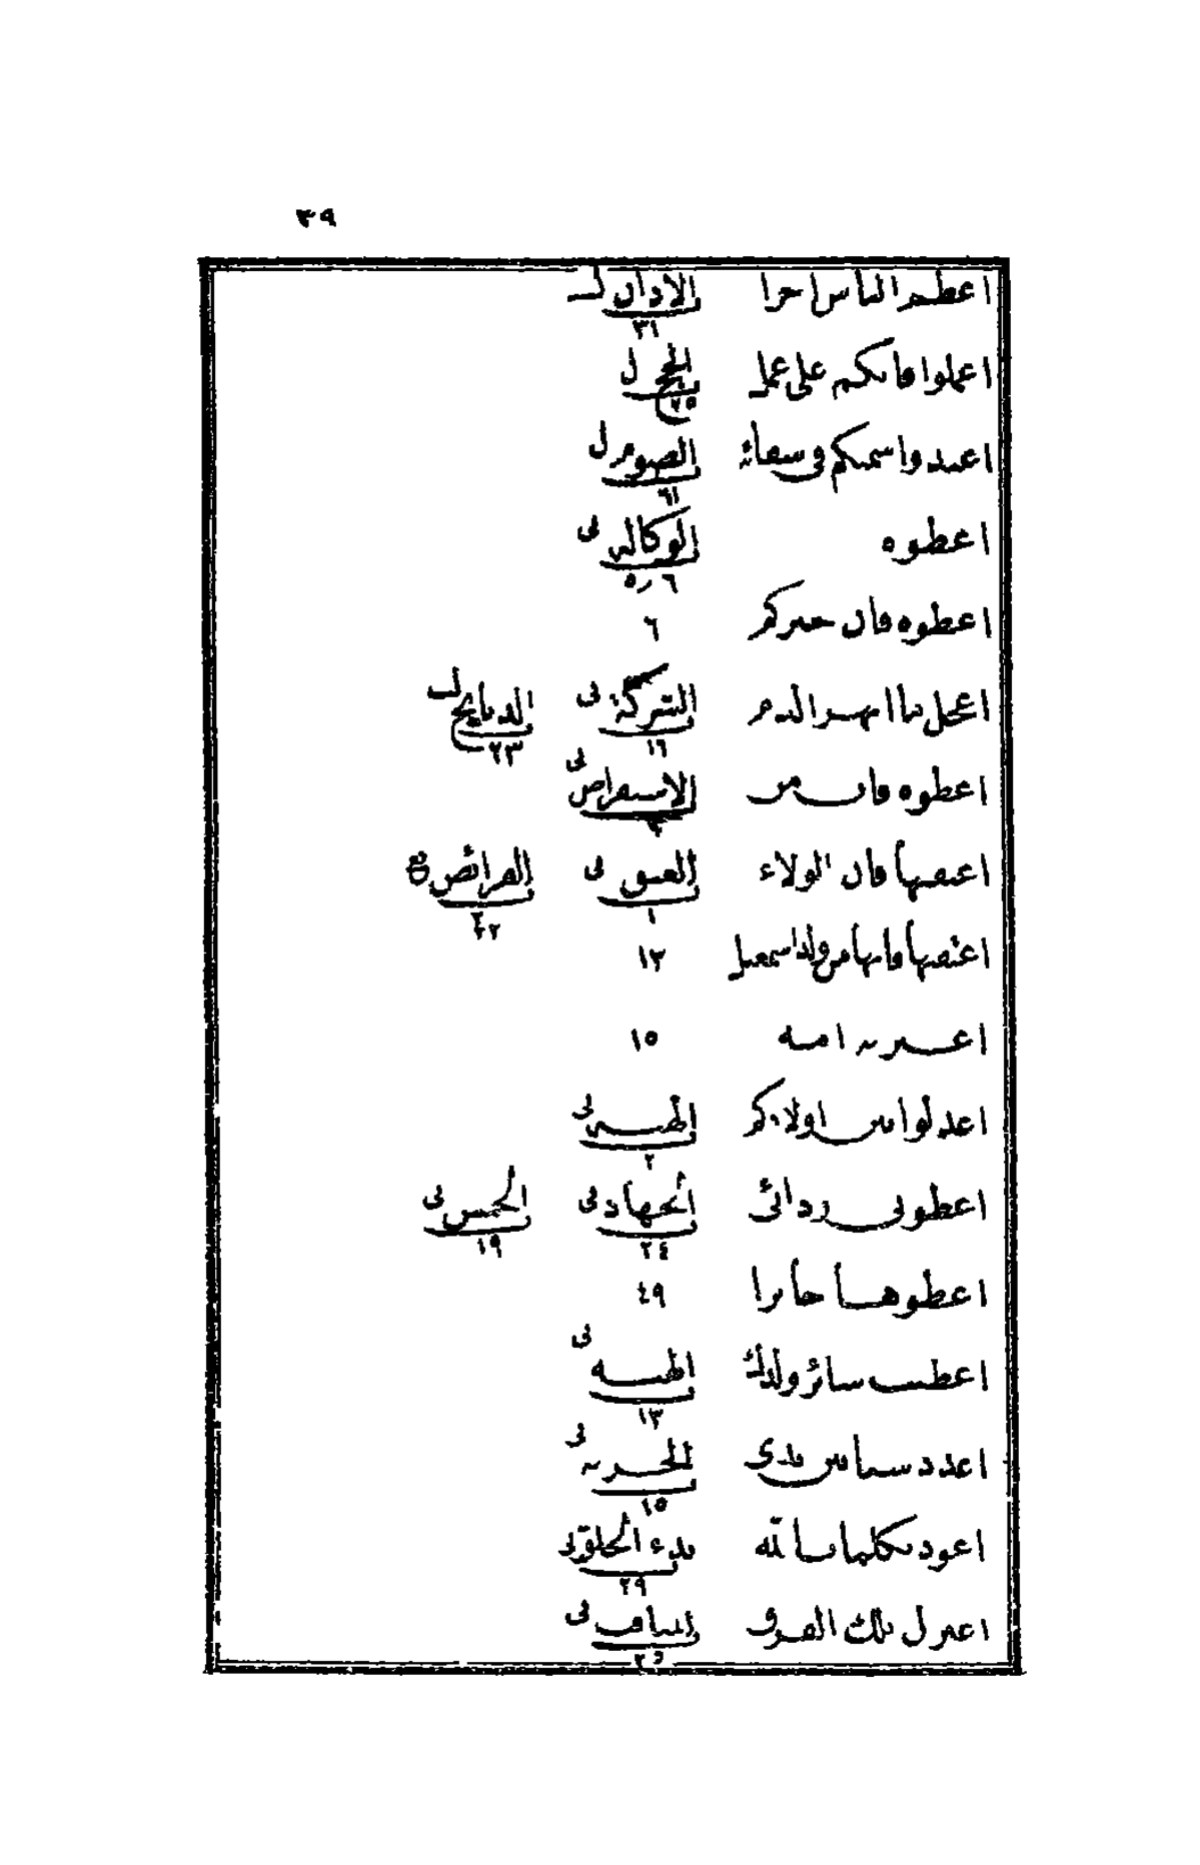 ٣٩
اعظم الناس اجرا الاذان ل
٣١
اعملوا فانكم على عمل الحج ل
٧٥
اعبد واسمكم فى سقائه الصوم ل
٦١
اعطوه الوكالة نى
٦ ر ٥
اعطوه فان خيركم ٦
اعجل ما انهر الدم الشركة نى الذبايح ل
١٦ ٢٣
اعطوه فان من الاستقراض نى
اعتقيها فان الولاء العتق نى الفرائض ع
١ ٢٢
اعتقيها فانها من ولد اسمعيل ١٣
اعيرته امه ١٥
اعدلوا بين اولادكم الهبة نى
٢
اعطونى ردائى الجهاد نى الخمس نى
٢٤ ١٩
اعطوها جابرا ٤٩
اعطيت سائر ولدك الهبة نى
١٣
اعدد ستا بين يدى الجزية نى
١٥
اعوذ بكلمات الله بدء الخلق نى
٢٩
اعتزل تلك الفرق المناقب نى